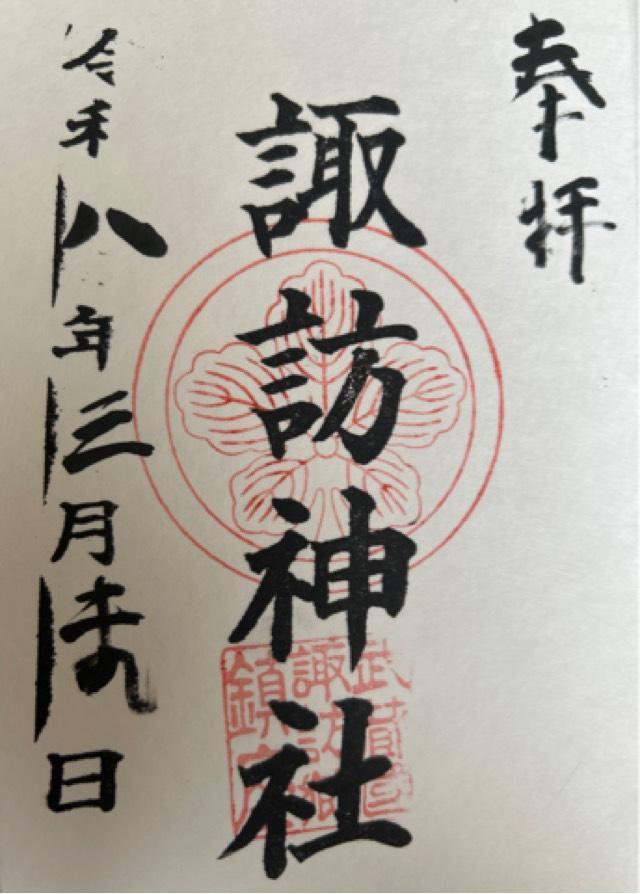 奉拝
諏訪神社
令和八年三月吉日
武蔵国
諏訪神
鎮座